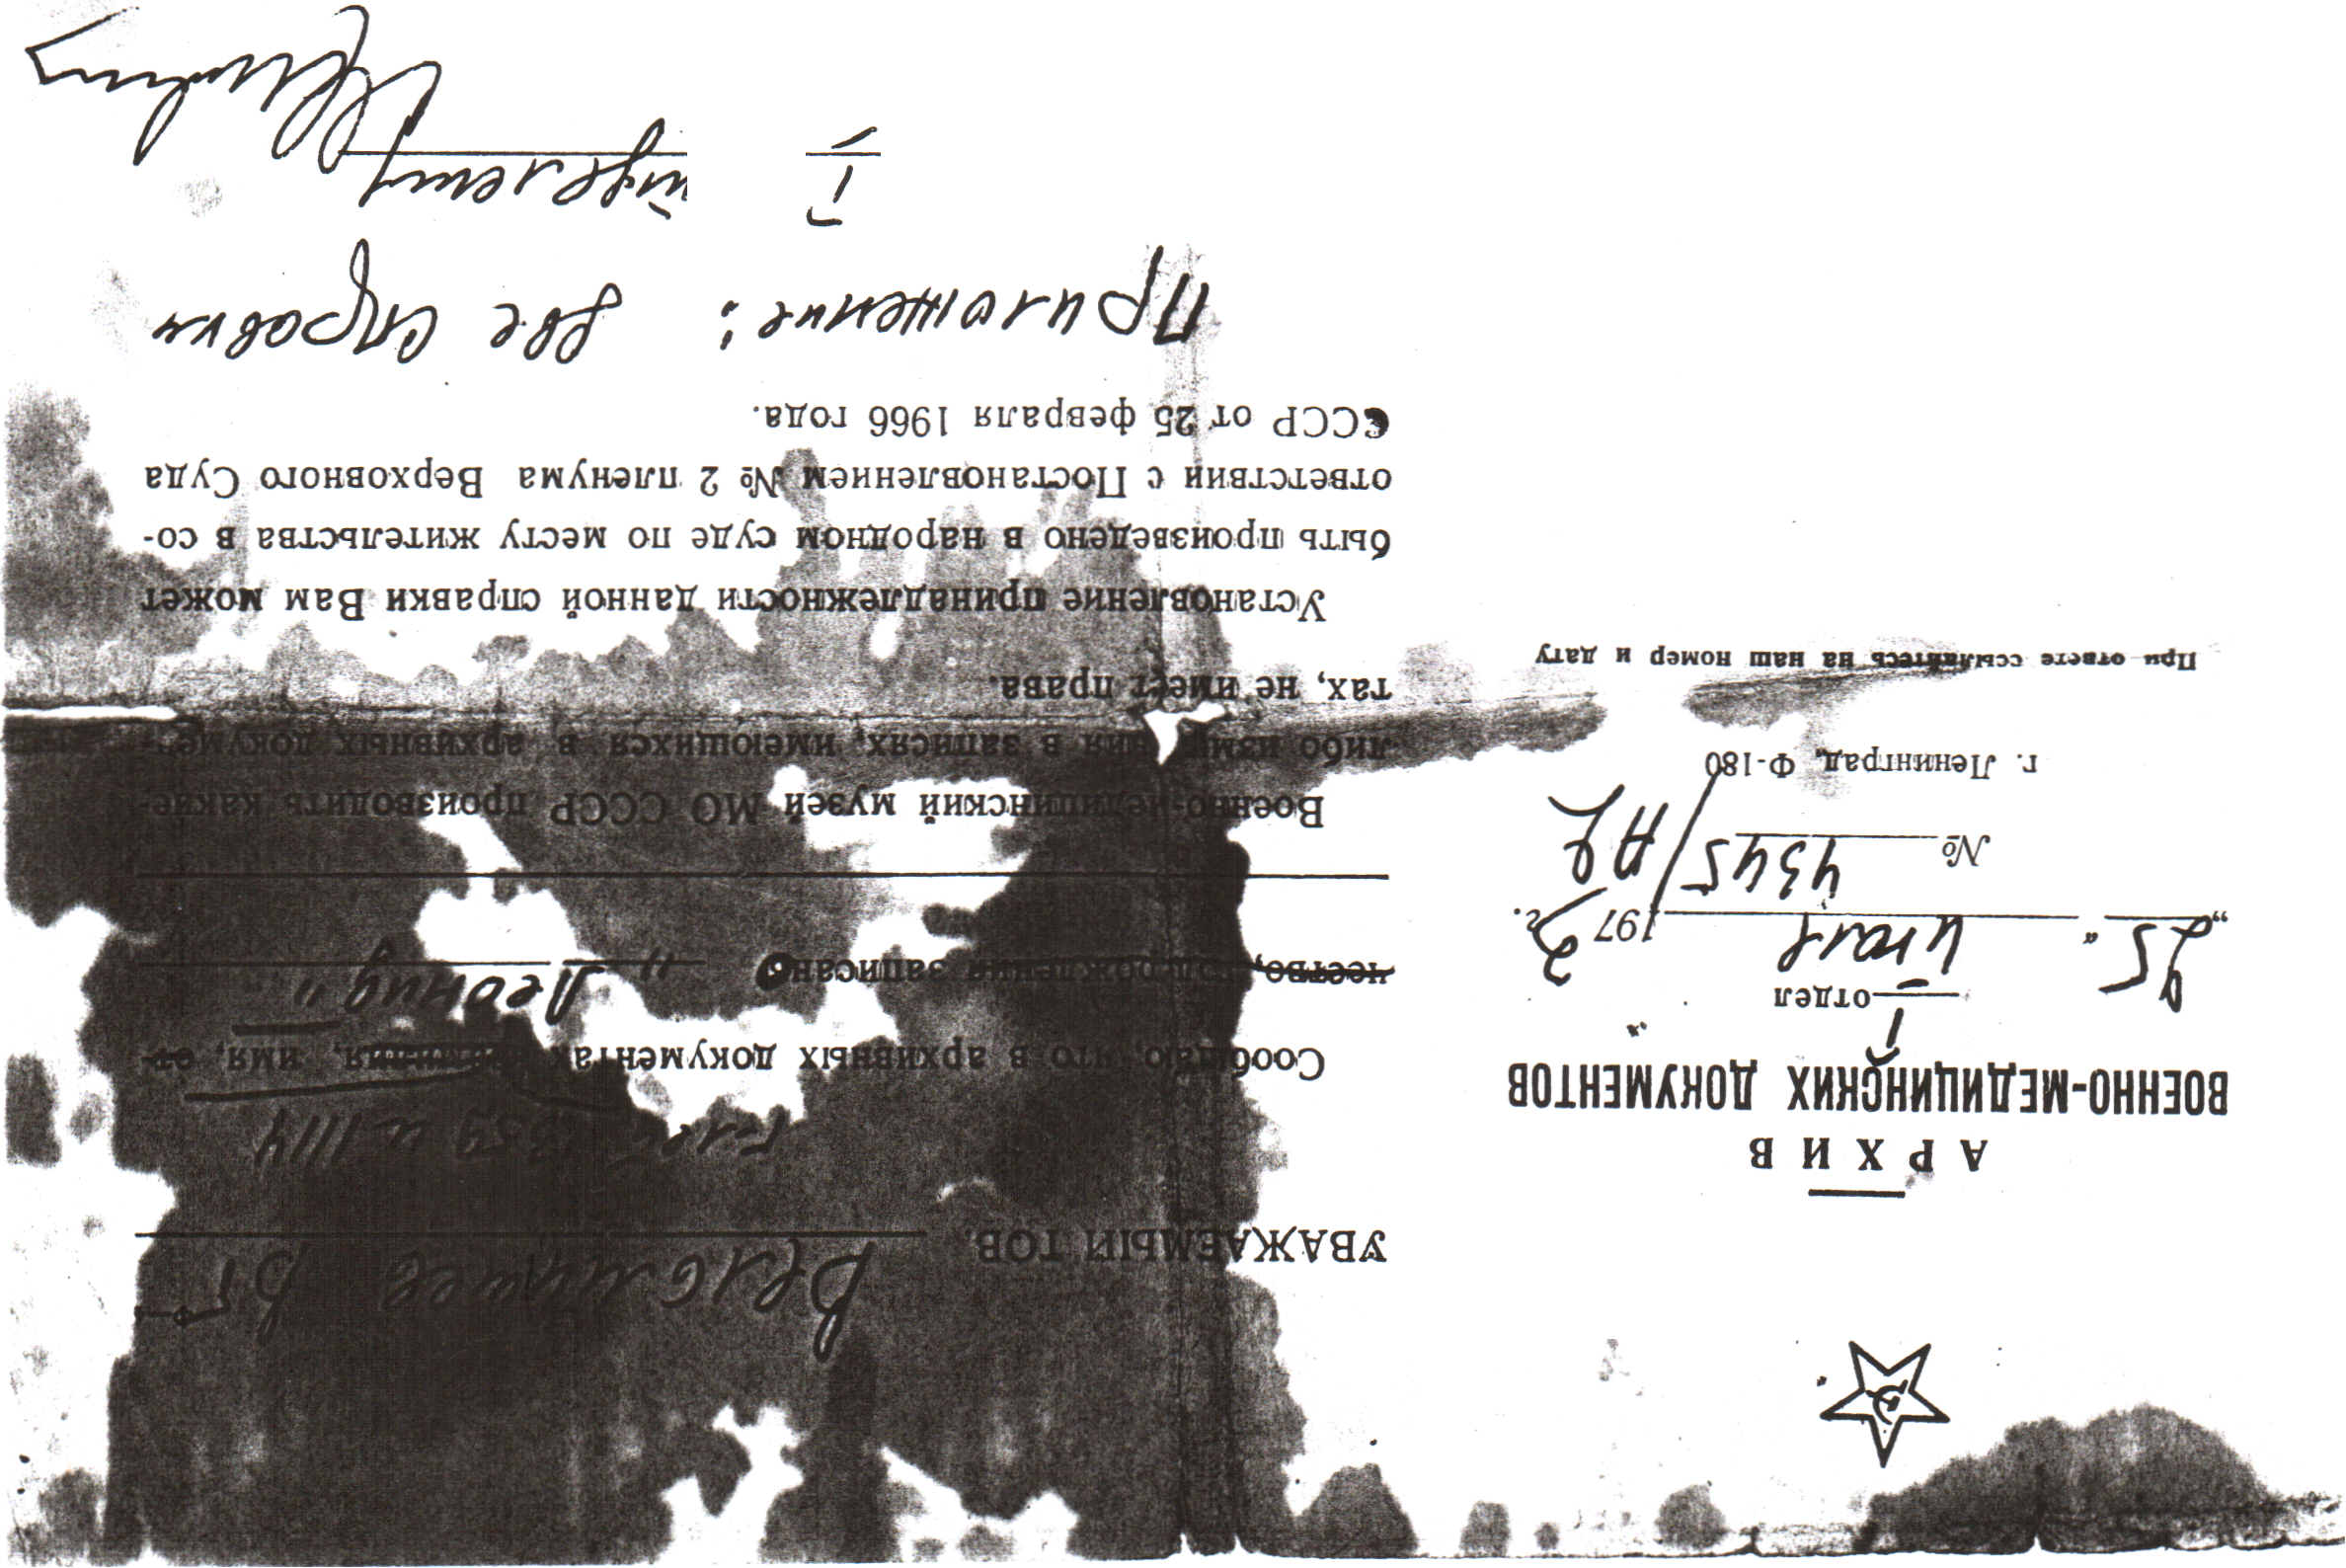 АРХИВ
ВОЕННО-МЕДИЦИНСКИХ ДОКУМЕНТОВ
I отдел
„25“ июля 1973 г.
№ 4345/
г. Ленинград, Ф-180
При ответе ссылайтесь на наш номер и дату
УВАЖАЕМЫЙ ТОВ.
и 1114
Сообщаю, что в архивных документах фамилия, имя, от-
чество, год рождения записано "Леонид"
Военно-медицинский музей МО СССР производить какие-
либо изменения в записях, имеющихся в архивных докумен-
тах, не имеет права.
Установление принадлежности данной справки Вам может
быть произведено в народном суде по месту жительства в со-
ответствии с Постановлением № 2 пленума Верховного Суда
СССР от 25 февраля 1966 года.
Приложение: две справки
I